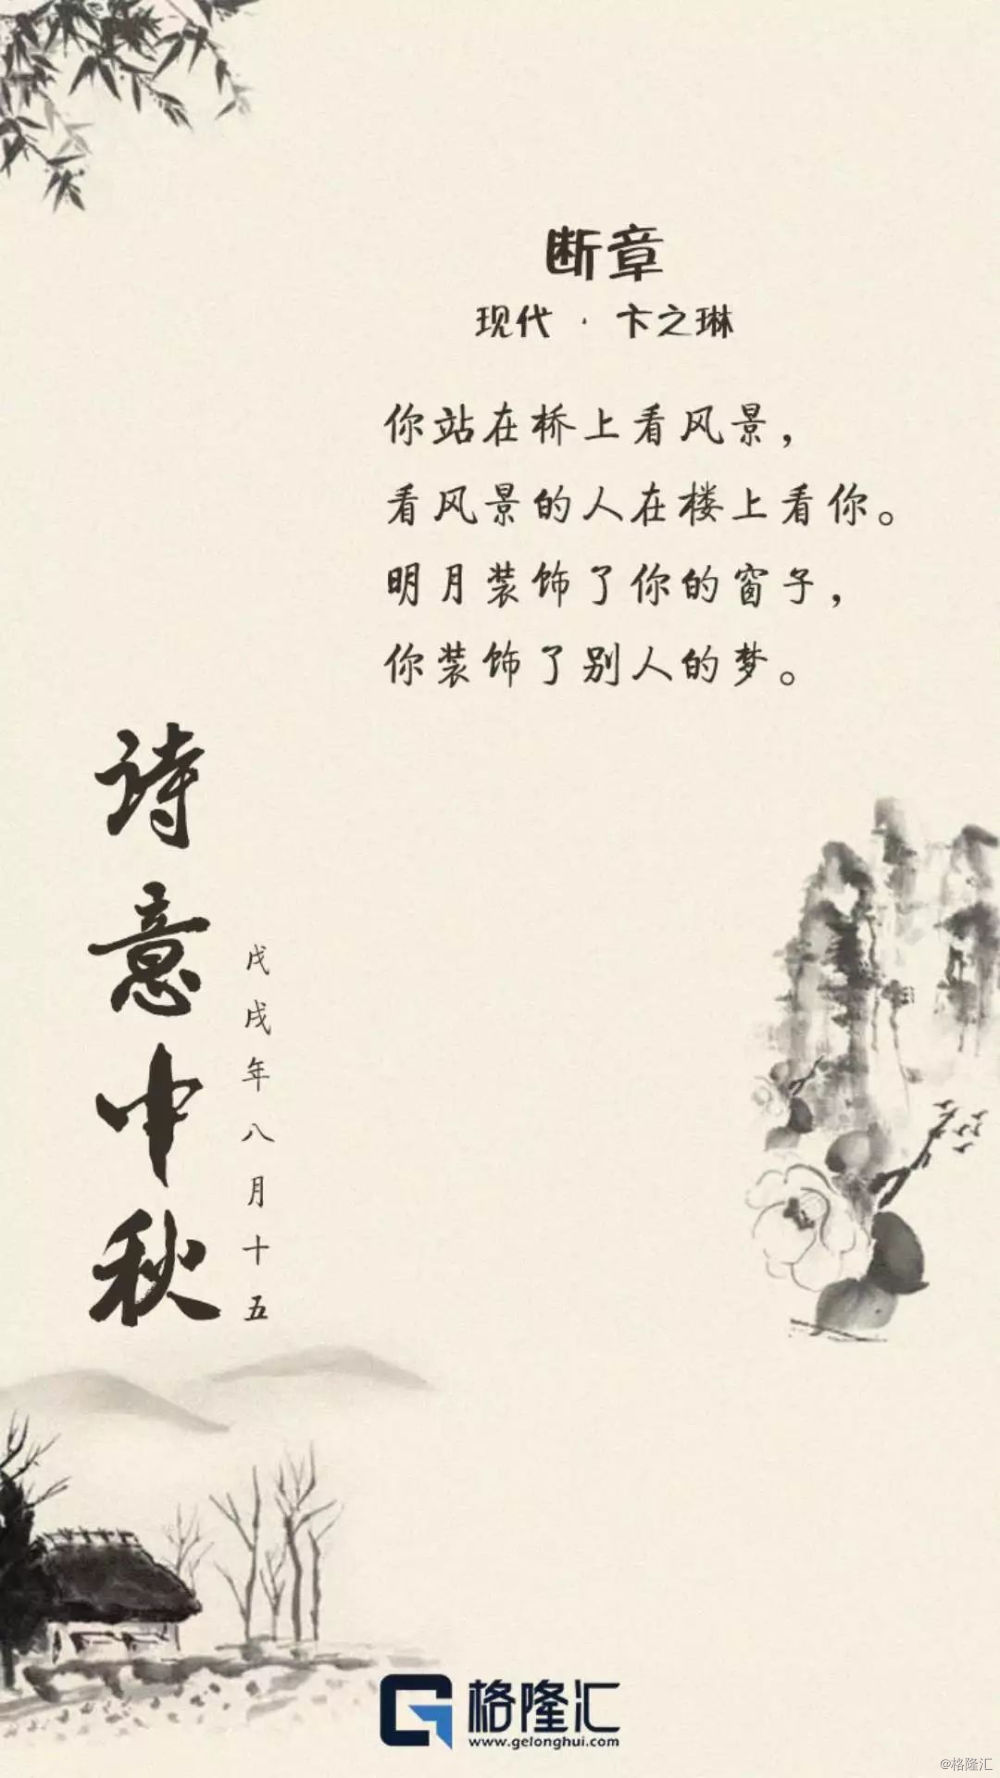 断章
现代 · 卞之琳
你站在桥上看风景，
看风景的人在楼上看你。
明月装饰了你的窗子，
你装饰了别人的梦。
诗意中秋
戊戌年八月十五
格隆汇
www.gelonghui.com
@格隆汇